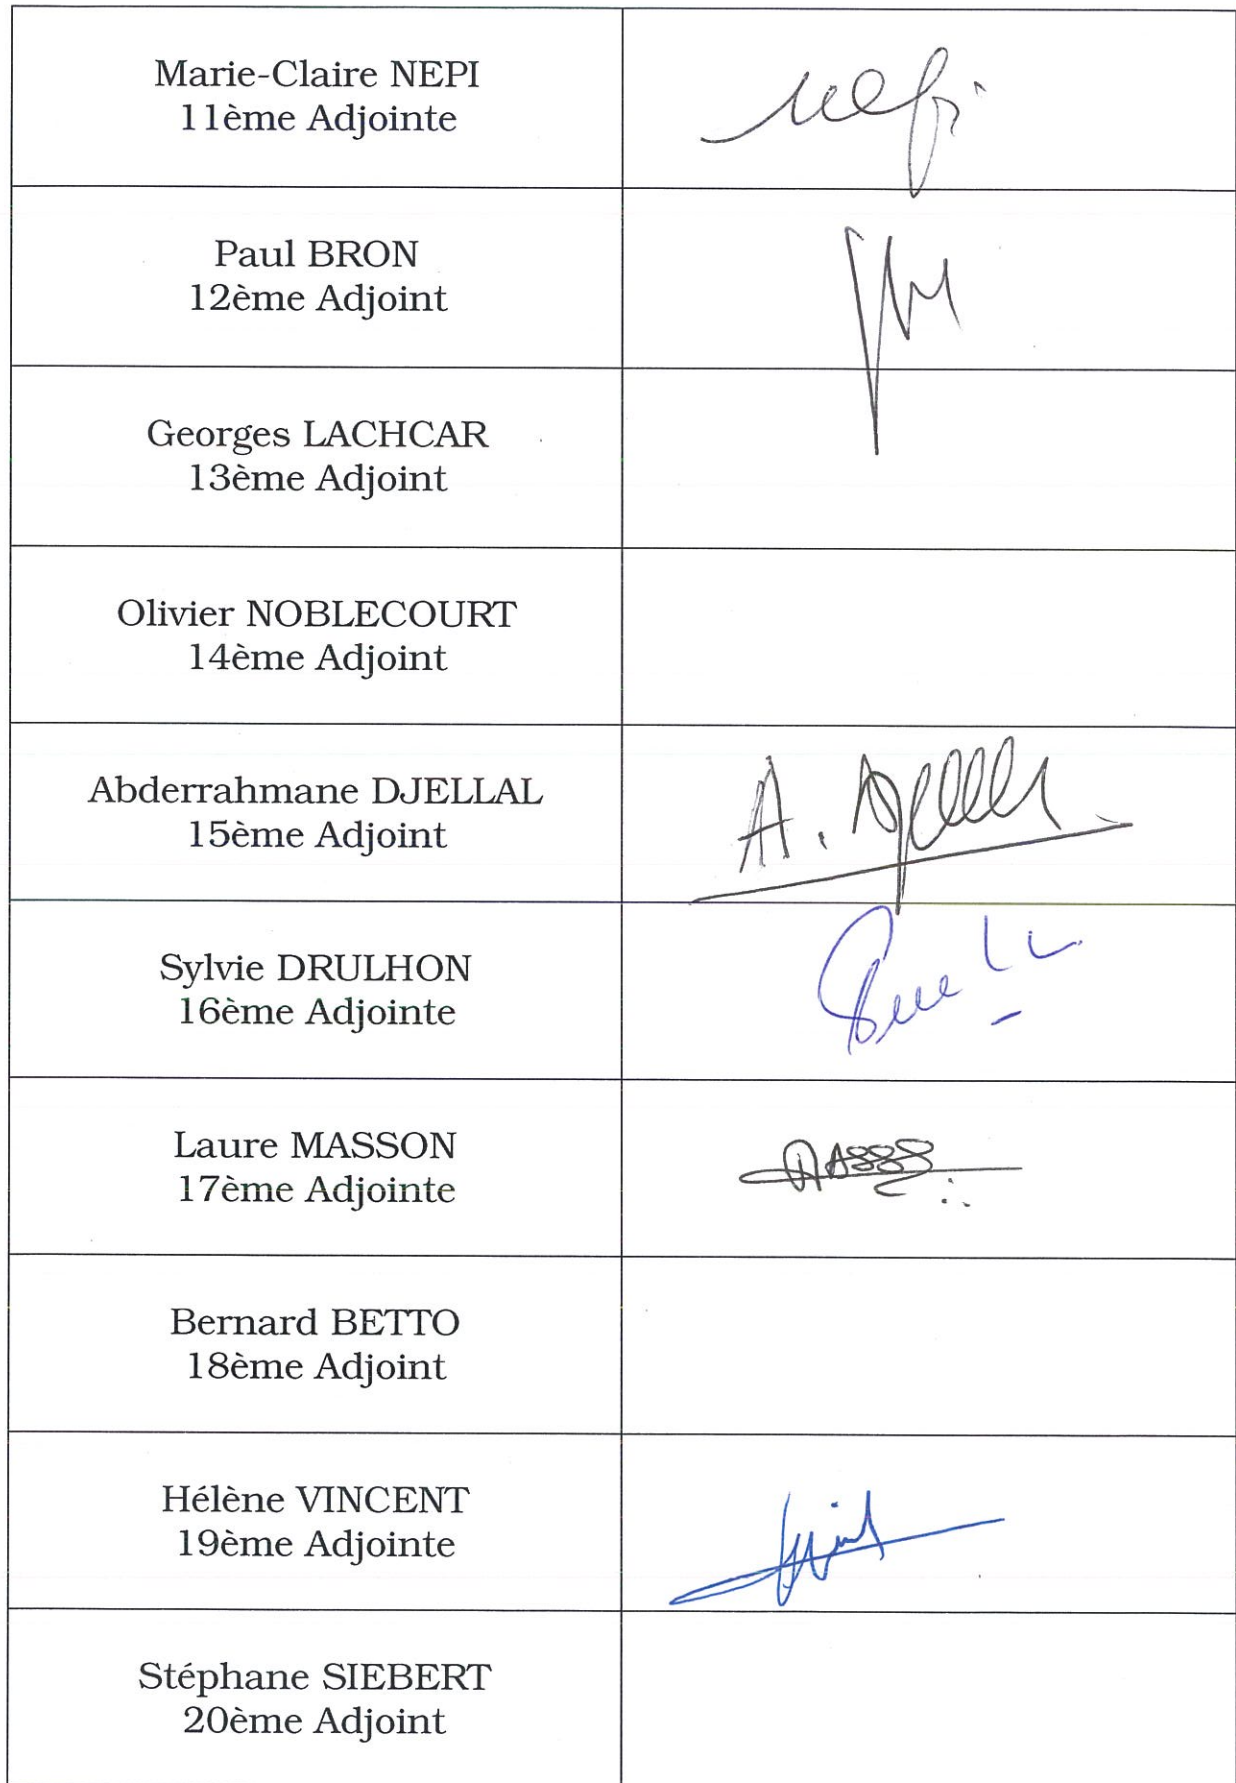 Marie-Claire NEPI
11ème Adjointe
Paul BRON
12ème Adjoint
Georges LACHCAR
13ème Adjoint
Olivier NOBLECOURT
14ème Adjoint
Abderrahmane DJELLAL
15ème Adjoint
A. Djellal
Sylvie DRULHON
16ème Adjointe
Laure MASSON
17ème Adjointe
Bernard BETTO
18ème Adjoint
Hélène VINCENT
19ème Adjointe
Stéphane SIEBERT
20ème Adjoint